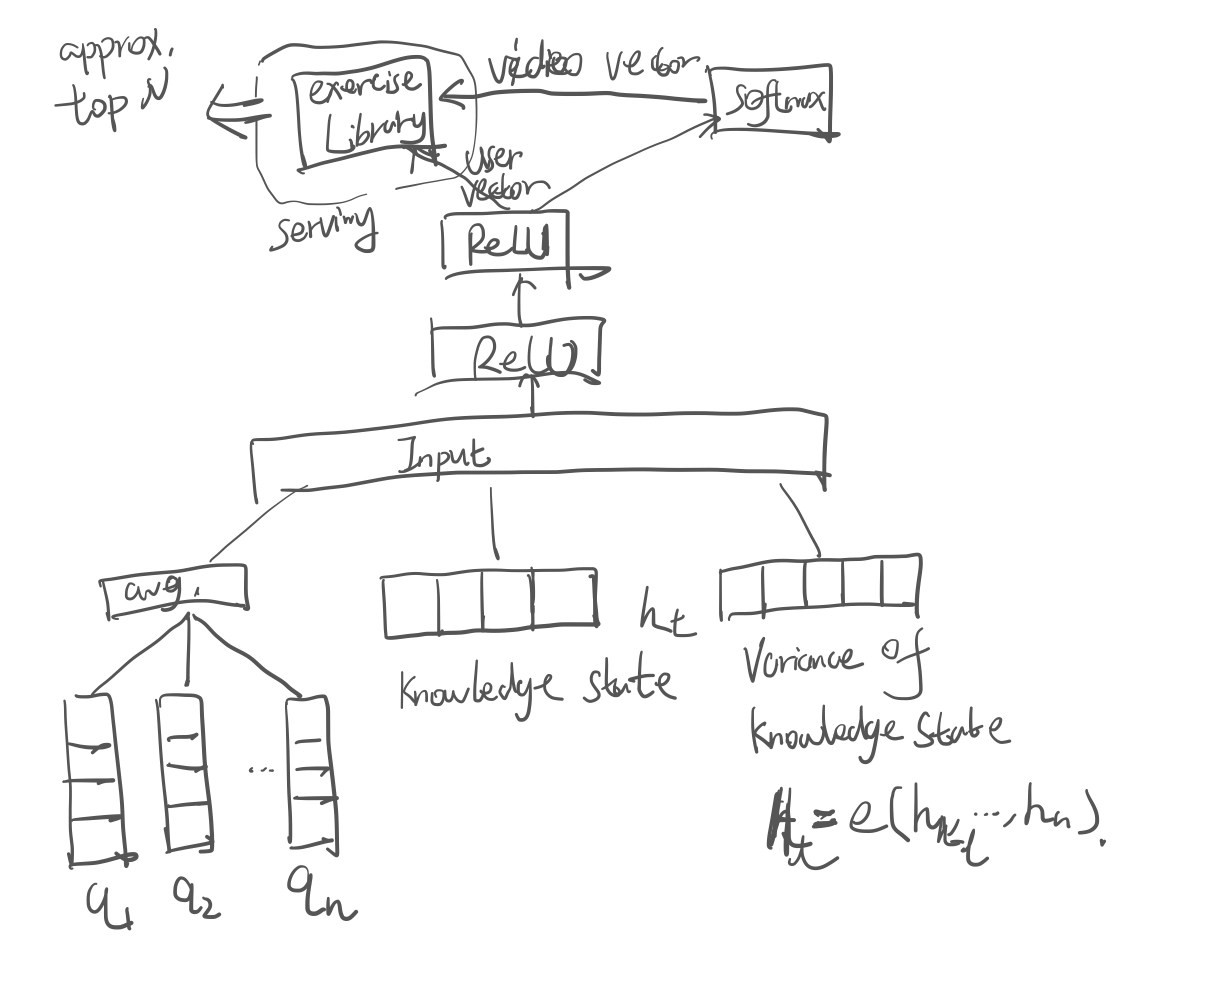 approx.
top N
exercise
Library
video vector
Softmax
user
vector
serving
ReLU
ReLU
Input
avg.
ht
Knowledge state
Variance of
Knowledge State
...
q1
q2
qn